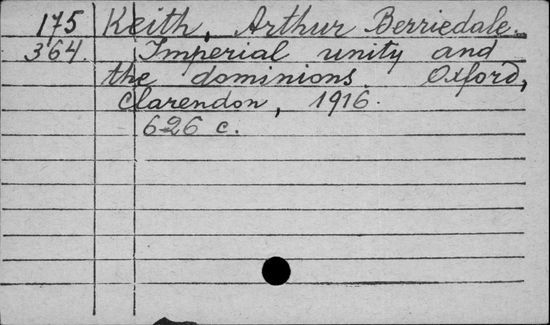 175 Keith, Arthur Berriedale.
3'64. Imperial unity and
the dominions. Oxford,
Clarendon, 1916.
626 c.